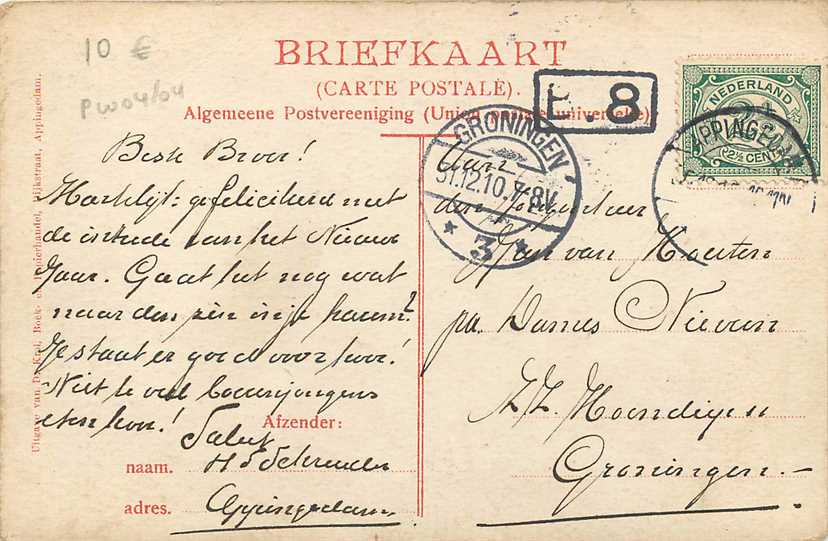 10 €
PW04/04
BRIEFKAART
(CARTE POSTALE).
Algemeene Postvereeniging (Union postale universelle).
P 8
NEDERLAND
2½ CENT
APPINGEDAM
GRONINGEN
31.12.10.7-8V.
3
Beste Broer!
Hartelijk gefeliciteerd met
de intrede van het Nieuwe
Jaar. Gaat het nog wat
naar den zin in je
Je staat er goed voor hoor!
Niet te veel boerenjongens
eten hoor!
Salut
Afzender:
naam. H
adres. Appingedam
Aan
den Jongeheer
Jan van Houten
pa. Dames
Z.Z.
Groningen.-
Uitgave van D. Kral, Boek- en Papierhandel, Dijkstraat, Appingedam.